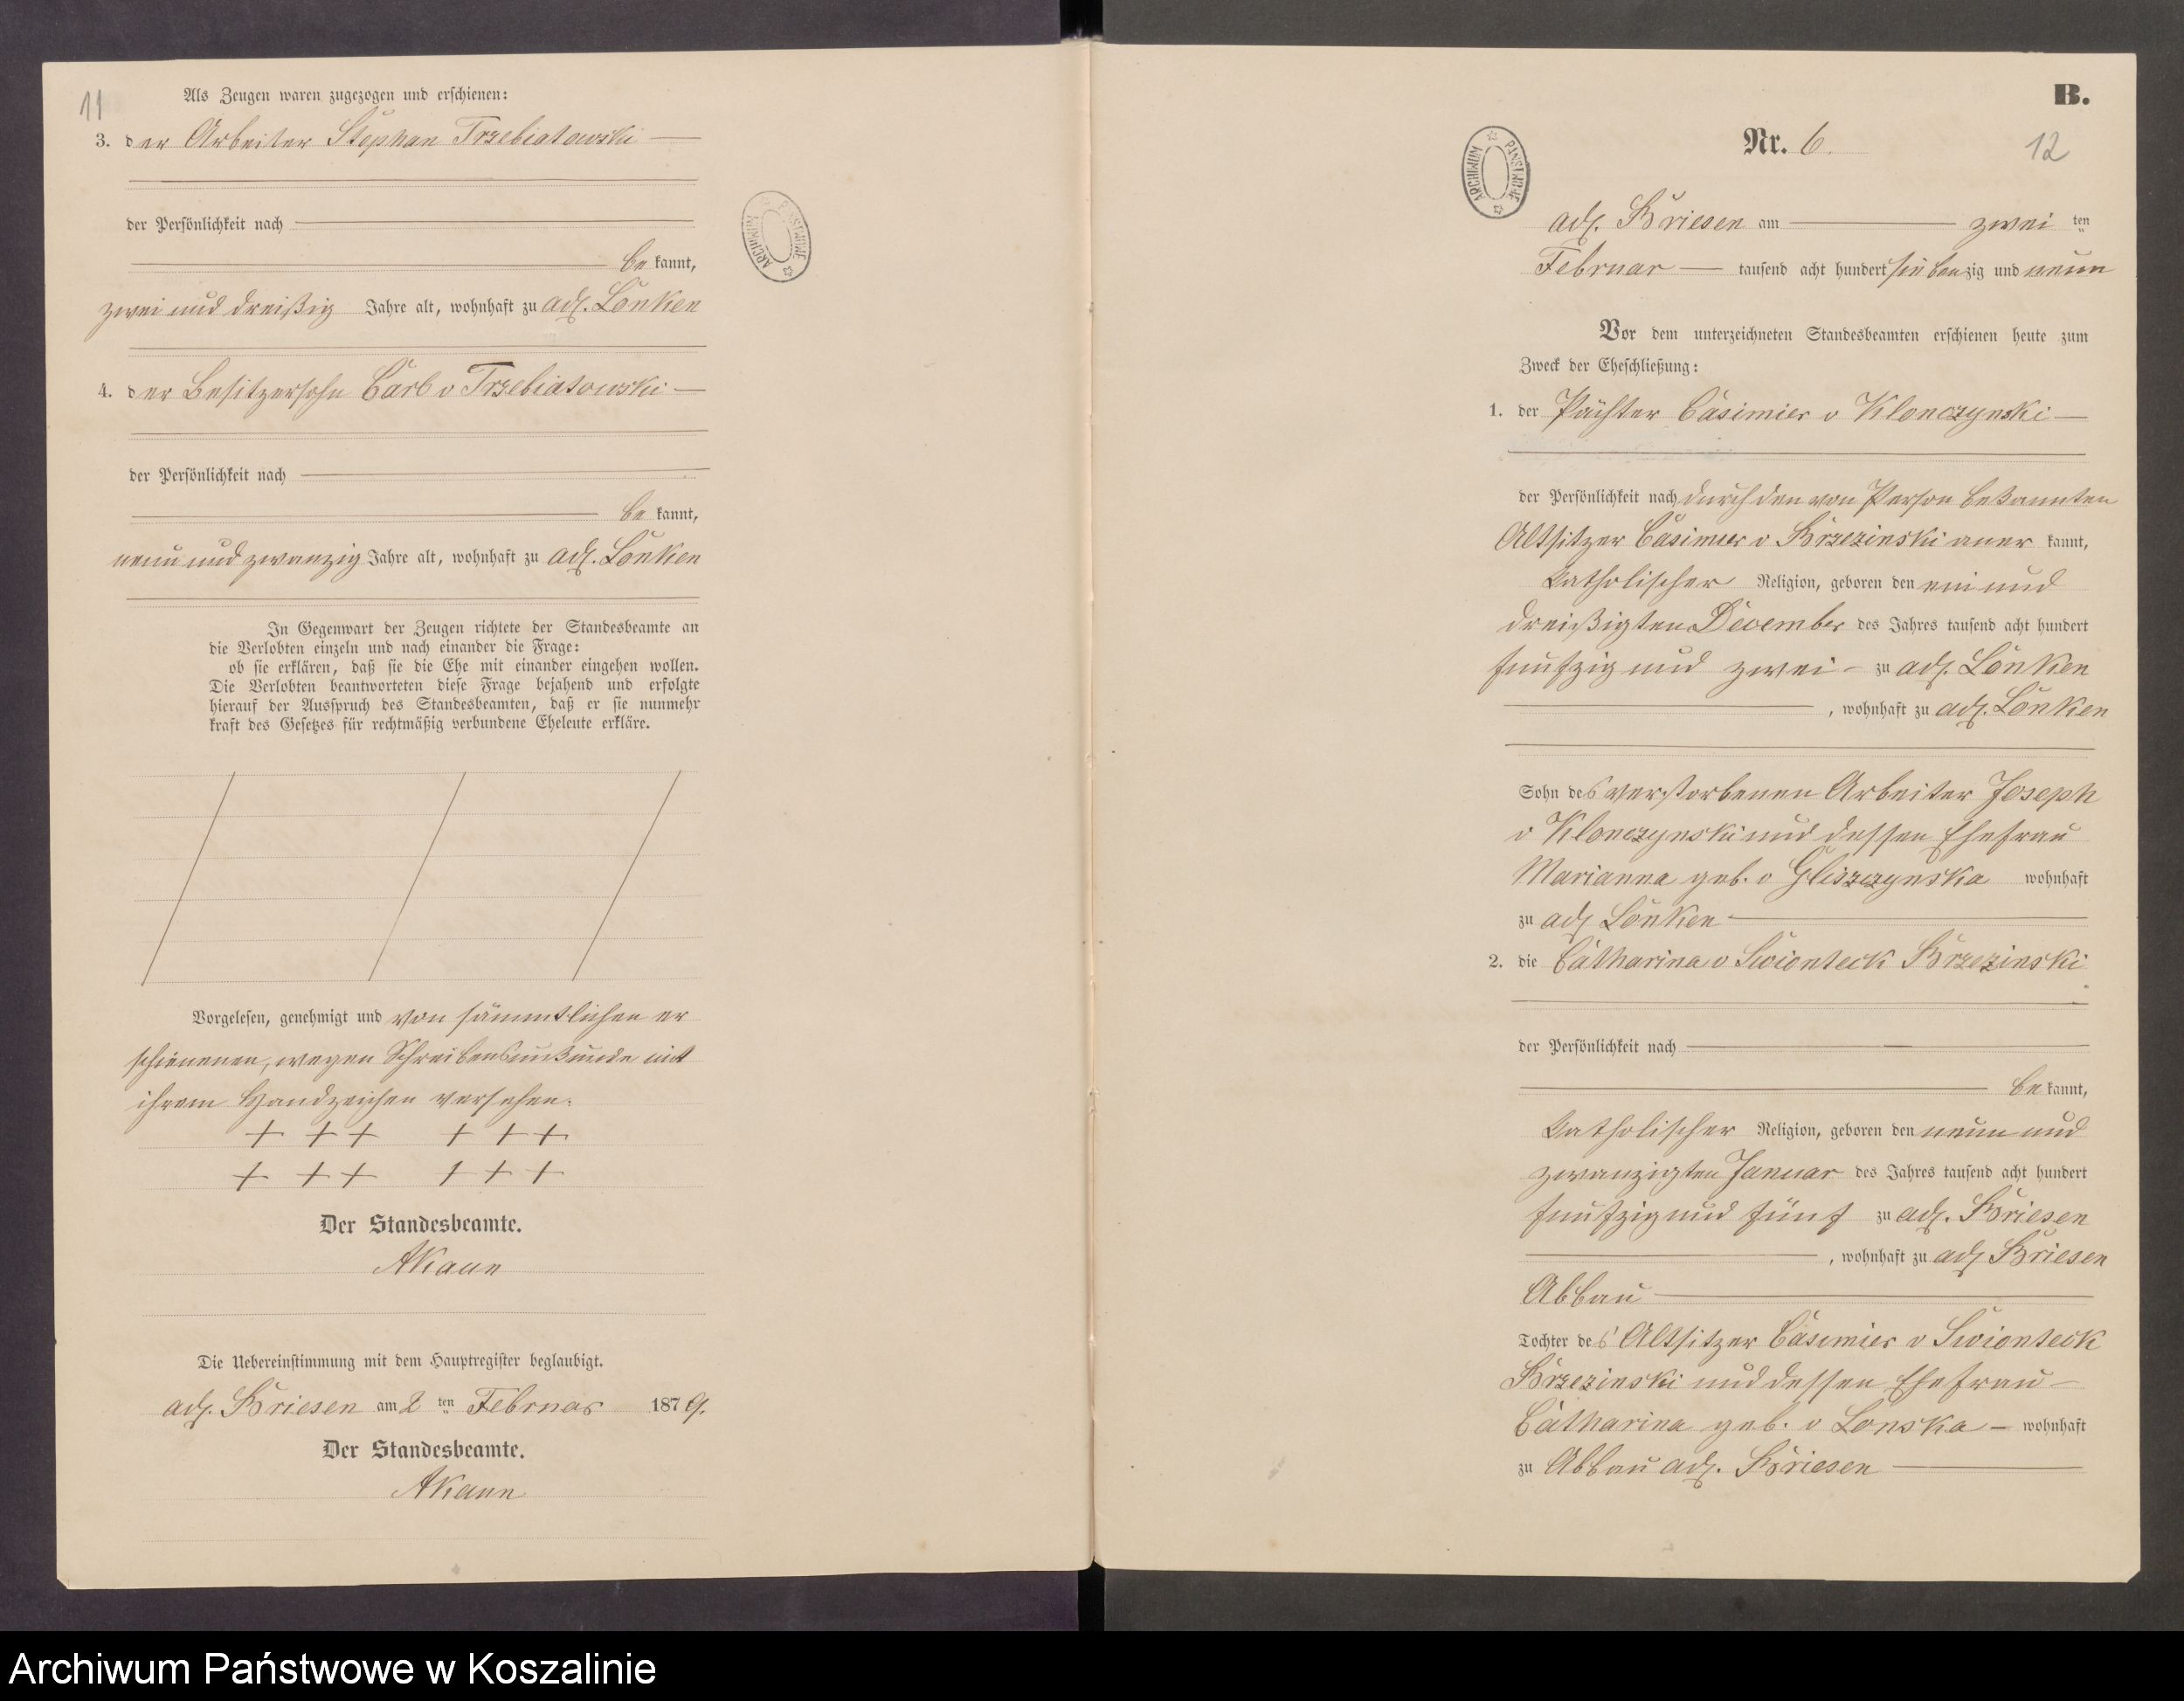 11
Als Zeugen waren zugezogen und erschienen:
3. der Arbeiter Stephan Trzebiatowski
der Persönlichkeit nach
be kannt,
zwei und dreißig Jahre alt, wohnhaft zu adl. Lonken
4. der Besitzersohn Carl v Trzebiatowski
der Persönlichkeit nach
be kannt,
neun und zwanzig Jahre alt, wohnhaft zu adl. Lonken
In Gegenwart der Zeugen richtete der Standesbeamte an
die Verlobten einzeln und nach einander die Frage:
ob sie erklären, daß sie die Ehe mit einander eingehen wollen.
Die Verlobten beantworteten diese Frage bejahend und erfolgte
hierauf der Ausspruch des Standesbeamten, daß er sie nunmehr
kraft des Gesetzes für rechtmäßig verbundene Eheleute erkläre.
Vorgelesen, genehmigt und von sämmtlichen er
schienenen, wegen Schreibensunkunde mit
ihrem Handzeichen versehen.
+ + + + + +
+ + + + + +
Der Standesbeamte.
AKaun
Die Uebereinstimmung mit dem Hauptregister beglaubigt.
adl. Briesen am 2 ten Februar 1879.
Der Standesbeamte.
AKaun
ARCHIWUM PAŃSTWOWE
B.
Nr. 6.
12
ARCHIWUM PAŃSTWOWE
adl. Briesen am zwei ten
Februar tausend acht hundert siebenzig und neun
Vor dem unterzeichneten Standesbeamten erschienen heute zum
Zweck der Eheschließung:
1. der Pächter Casimier v Klonczynski
der Persönlichkeit nach durch den von Person bekannten
Altsitzer Casimier v Brzezinski aner kannt,
katholischer Religion, geboren den ein und
dreißigten December des Jahres tausend acht hundert
funfzig und zwei zu adl. Lonken
, wohnhaft zu adl. Lonken
Sohn des verstorbenen Arbeiter Joseph
v Klonczynski und dessen Ehefrau
Marianna geb. v Gliszczynska wohnhaft
zu adl Lonken
2. die Catharina v Swionteck Brzezinski
der Persönlichkeit nach
be kannt,
katholischer Religion, geboren den neun und
zwanzigten Januar des Jahres tausend acht hundert
funfzig und fünf zu adl. Briesen
, wohnhaft zu adl Briesen
Abbau
Tochter des Altsitzer Casimier v Swionteck
Brzezinski und dessen Ehefrau
Catharina geb. v Lonska wohnhaft
zu Abbau adl. Briesen
Archiwum Państwowe w Koszalinie